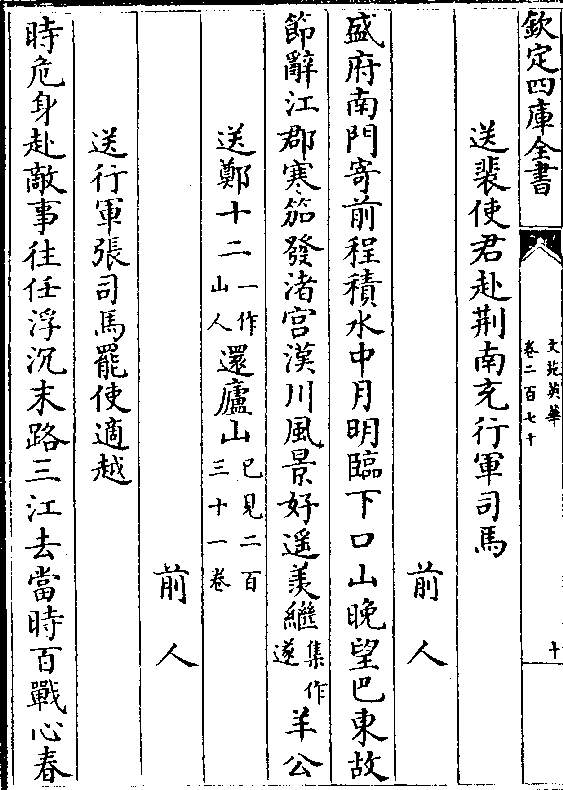 欽定四庫全書
文苑英華
卷二百七十
十
送裴使君赴荆南充行軍司馬
前人
盛府南門寄前程積水中月明臨下口山晚望巴東故
節辭江郡寒笳發渚宫漢川風景好遥羡繼集作遂羊公
送鄭十二一作山人還廬山已見二百三十一卷
前人
送行軍張司馬罷使適越
時危身赴敵事往任浮沉末路三江去當時百戰心春